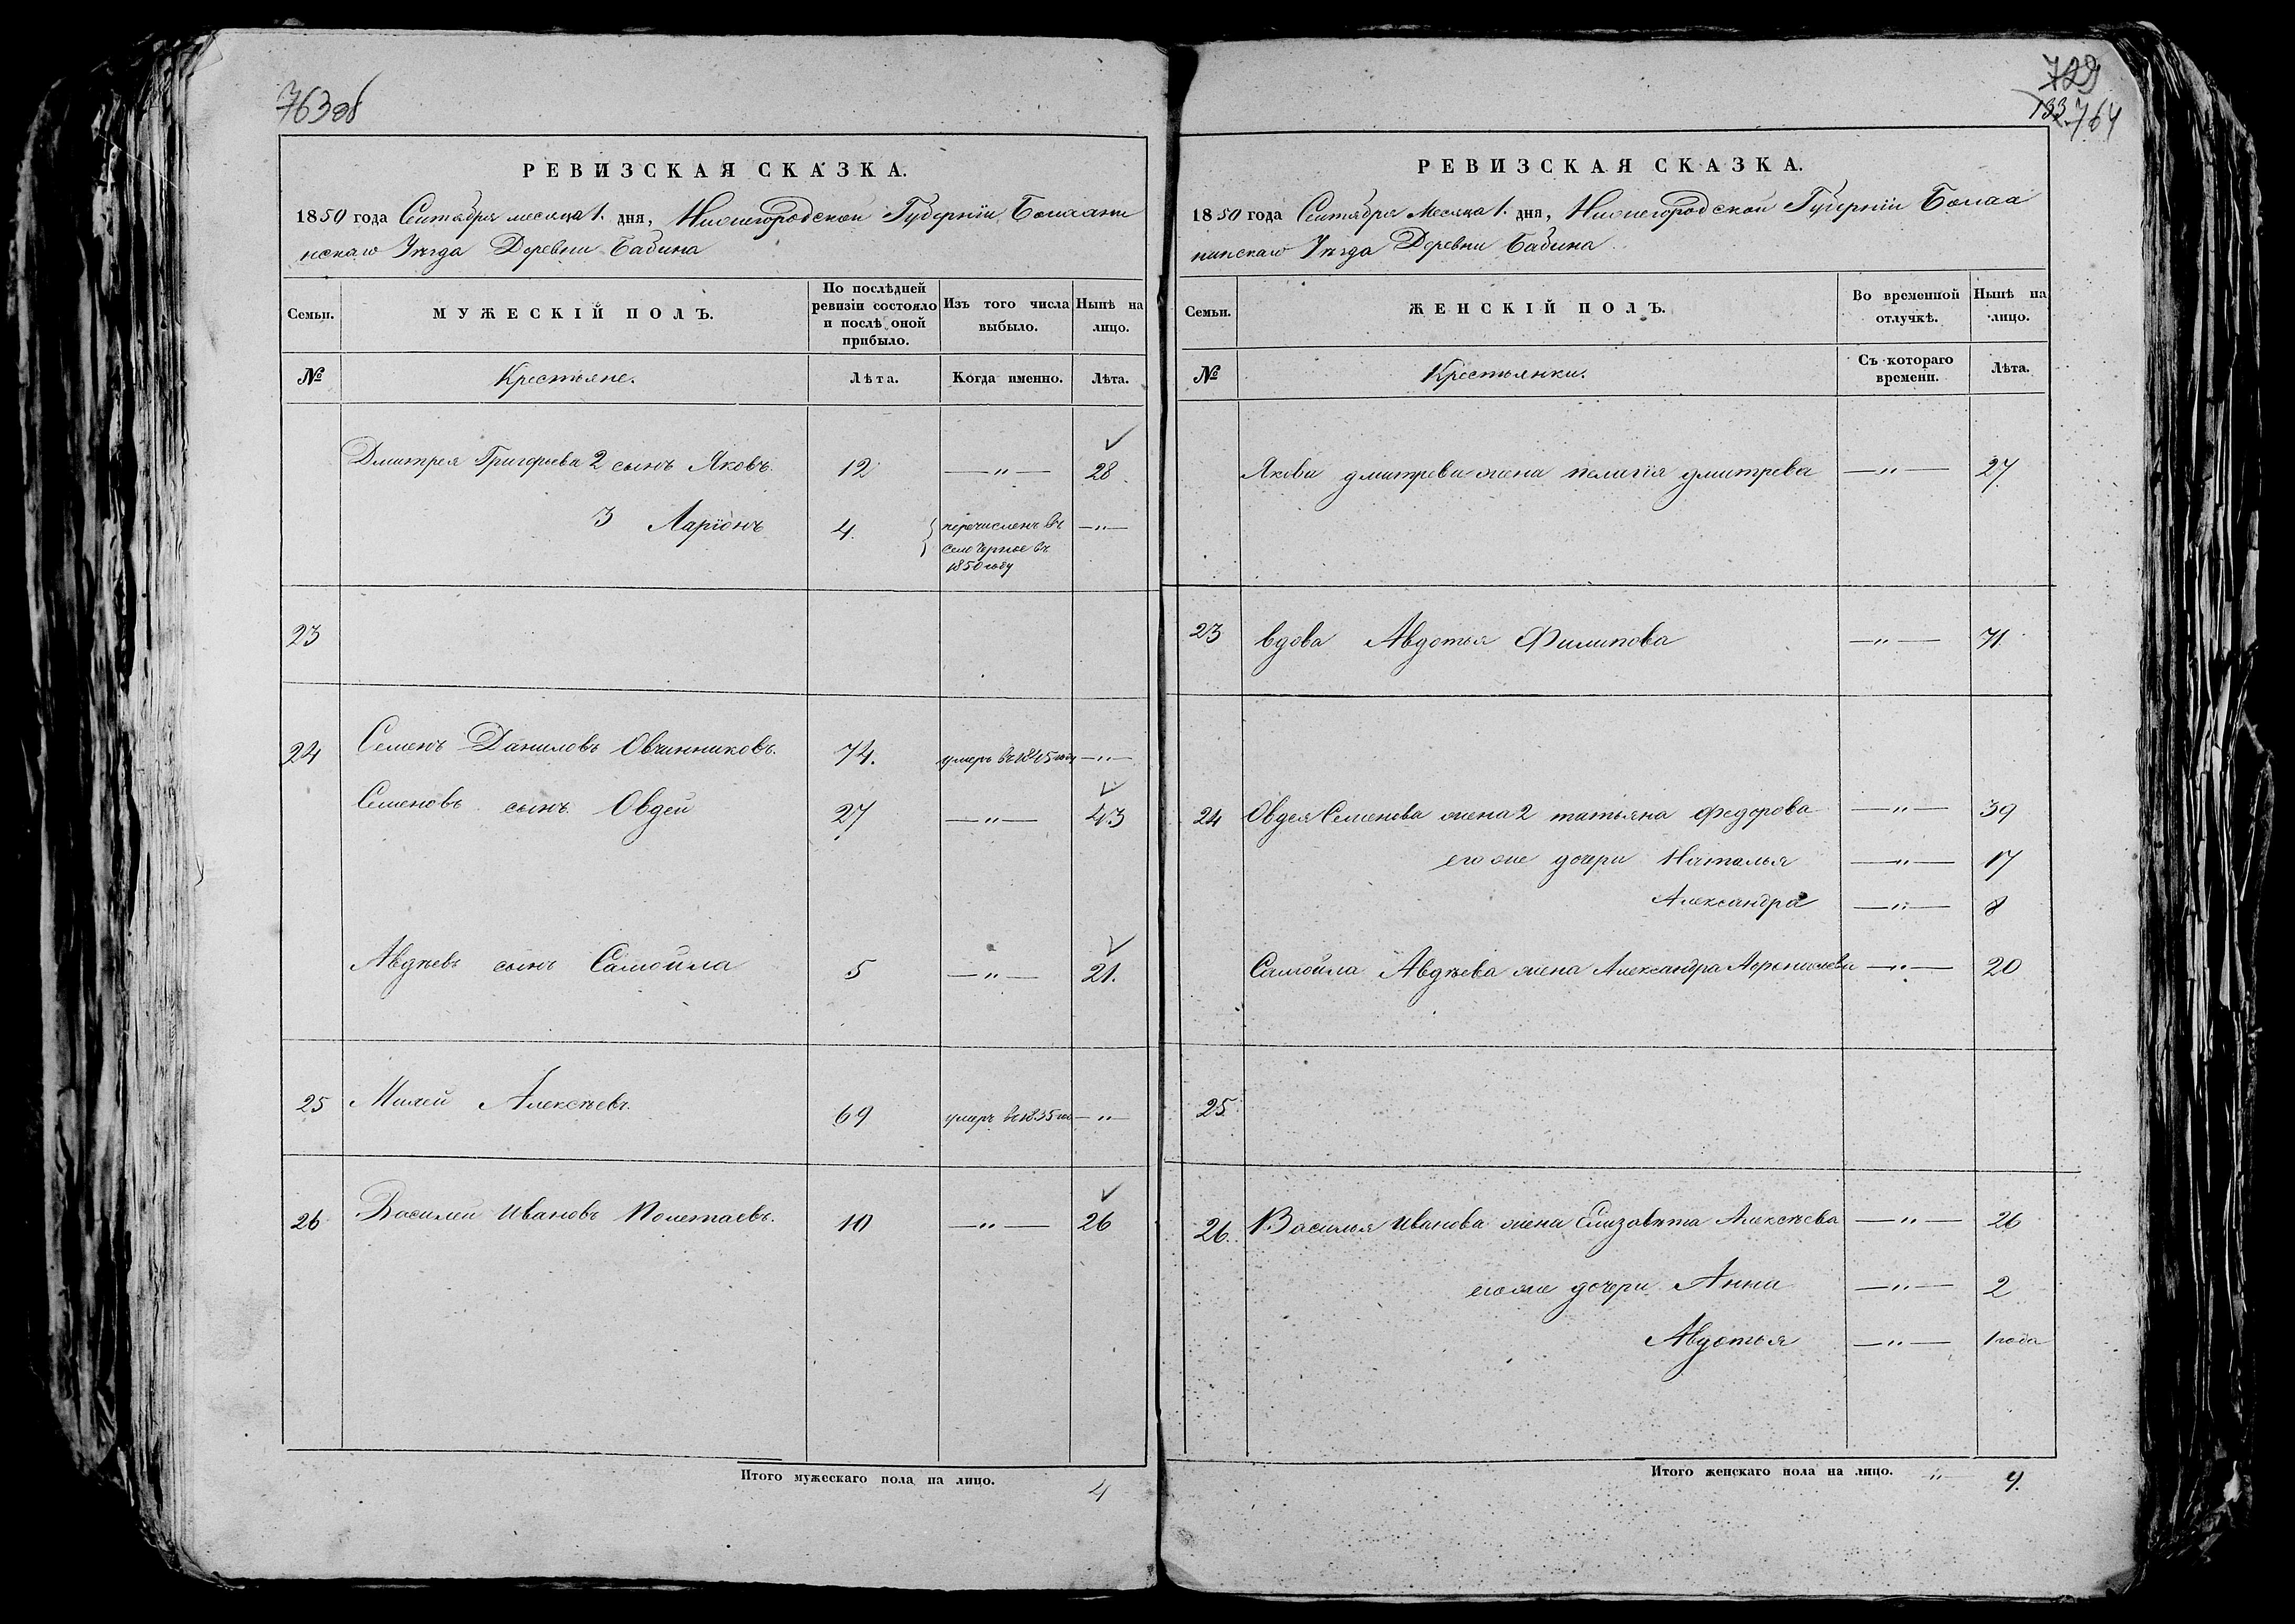 763об
РЕВИЗСКАЯ СКАЗКА.
1850 года Сентября месяца 1. дня, Нижегородской Губернiи Балахни
нскаго Уѣзда Деревни Бабина
Семьи.
МУЖЕСКІЙ ПОЛЪ.
По послѣдней
ревизіи состояло
и послѣ оной
прибыло.
Изъ того числа
выбыло.
Нынѣ на
лицо.
№
Крестьяне.
Лѣта.
Когда именно.
Лѣта.
Дмитрея Григорьева 2 сынъ Яковъ. 12 —〃— 28
3 Ларiонъ 4. перечисленъ въ —〃—
село Черное въ
1850 году
23
24 Семенъ Даниловъ Овчинниковъ. 74. умеръ въ 1845 году —〃—
Семеновъ сынъ Овдей 27 —〃— 43
Авдѣевъ сынъ Самойла 5 —〃— 21.
25 Милей Алексѣевъ. 69 умеръ въ 1835 го —〃—
26 Василей Ивановъ Полетаевъ. 10 —〃— 26
Итого мужескаго пола на лицо. 4
729
133 764
РЕВИЗСКАЯ СКАЗКА.
1850 года Сентября Месяца 1. дня, Нижегородской Губернiи Балах
нинскаго Уѣзда Деревни Бабина
Семьи.
ЖЕНСКІЙ ПОЛЪ.
Во временной
отлучкѣ.
Нынѣ на
лицо.
№
Крестьянки.
Съ котораго
времени.
Лѣта.
Якова дмитрева жена пелагiя дмитрева —〃— 27
23 вдова Авдотья Филипова —〃— 71.
24 Овдея Семенова жена 2 татьяна федорова —〃— 39
его же дочери Наталья —〃— 17
Александра —〃— 8
Самойла Авдѣева жена Александра Афонасьева —〃— 20
25.
26. Василья Иванова жена Елизавета Алексѣева —〃— 26
его же дочери Анна —〃— 2
Авдотья —〃— 1 года
Итого женскаго пола на лицо. —〃— 9.